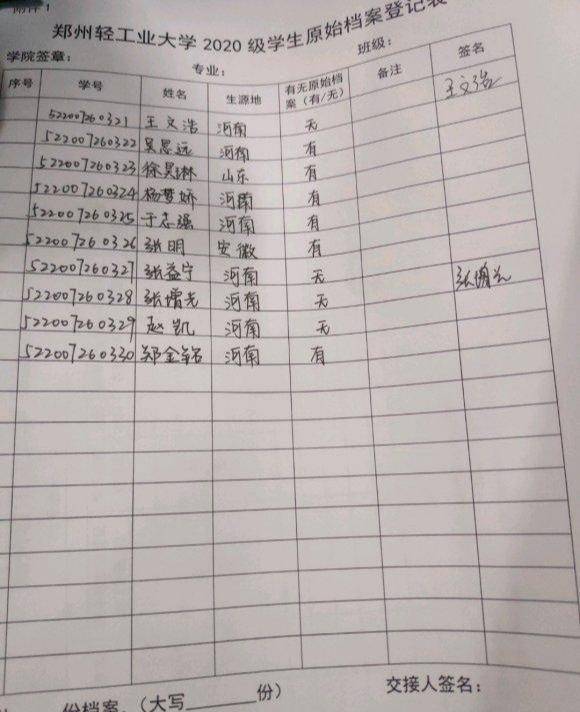 附件1
郑州轻工业大学 2020 级学生原始档案登记表
学院签章： 专业： 班级：
序号 学号 姓名 生源地 有无原始档案（有/无） 备注 签名
522007260321 王文浩 河南 无 王文浩
522007260322 吴思远 河南 有
522007260323 徐昊琳 山东 有
522007260324 杨梦娇 河南 有
522007260325 于志强 河南 有
522007260326 张明 安徽 有
522007260327 张益宁 河南 无
522007260328 张增光 河南 无
522007260329 赵凯 河南 无
522007260330 郑金铭 河南 有
份档案。（大写______份） 交接人签名：